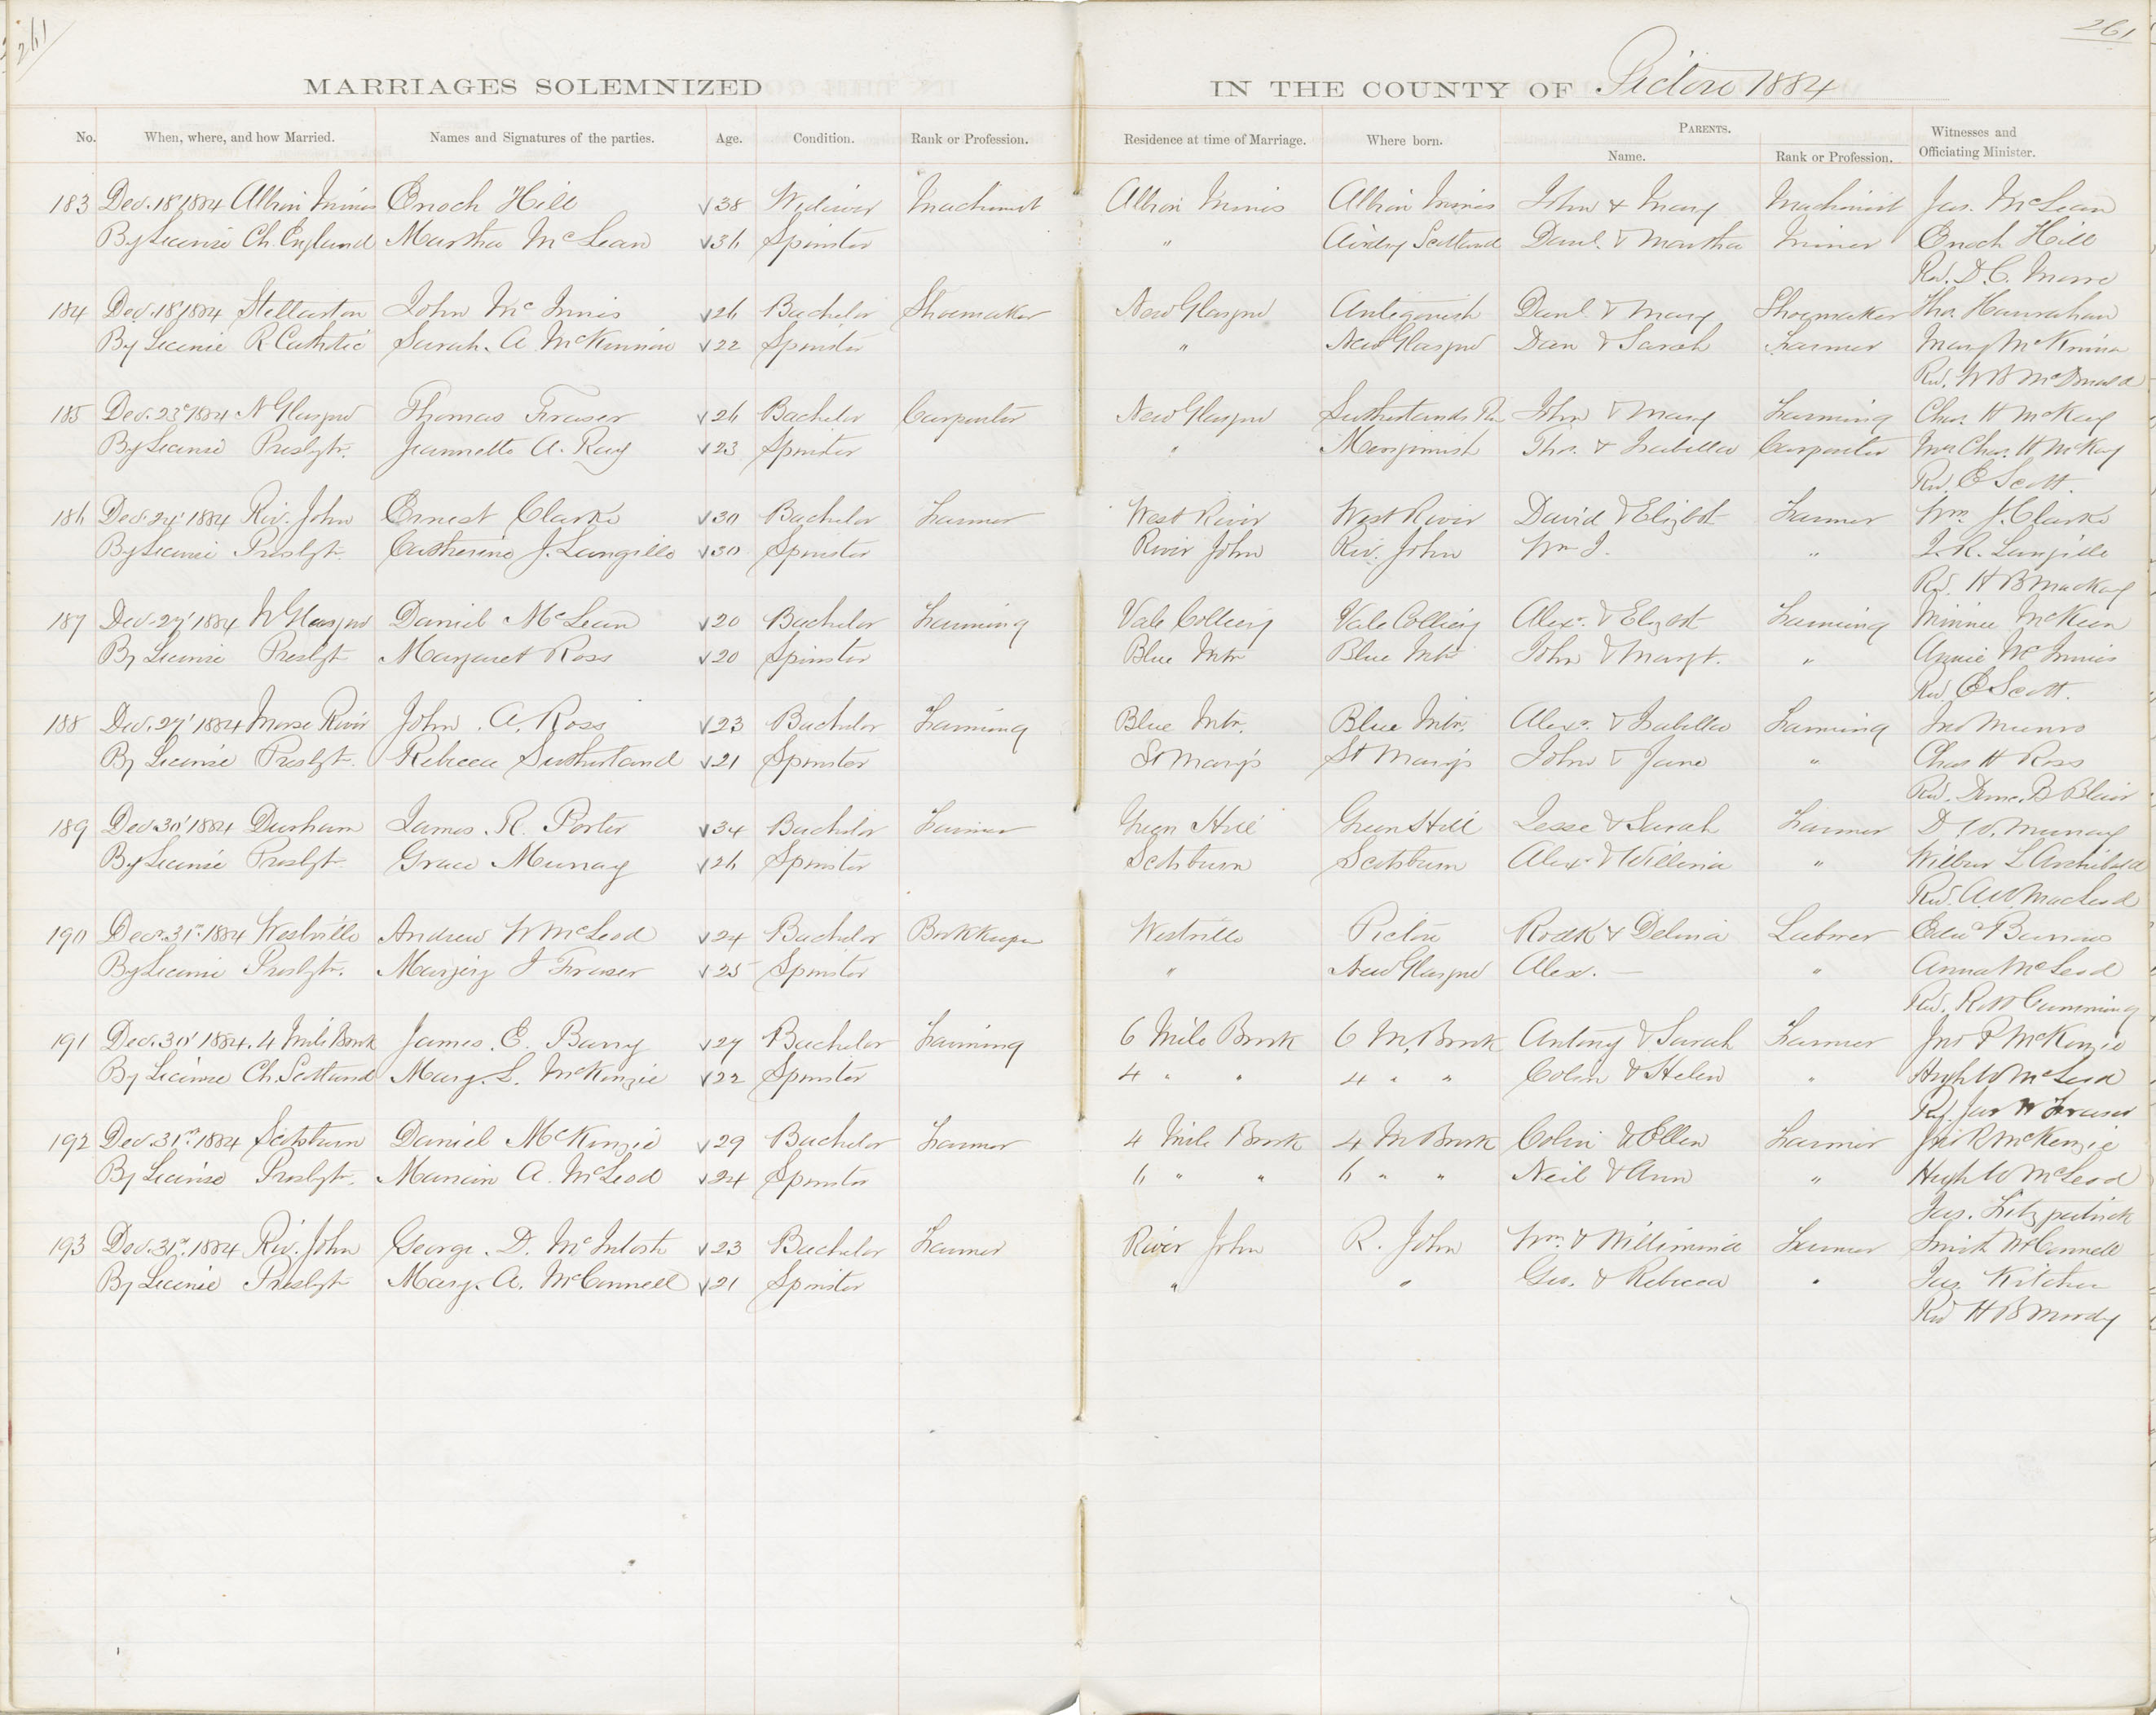 261
261
MARRIAGES SOLEMNIZED IN THE COUNTY OF Pictou 1884
No. When, where, and how Married. Names and Signatures of the parties. Age. Condition. Rank or Profession. Residence at time of Marriage. Where born. PARENTS. Name. Rank or Profession. Witnesses and Officiating Minister.
183 Dec. 18' 1884 Albion Mines Enoch Hill 38 Widower Machinist Albion Mines Albion Mines John & Mary Machinist Jas. McLean
By License Ch. England Martha McLean 36 Spinster " Airdry Scotland Danl. & Martha Miner Enoch Hill
Rev. D. C. Moore
184 Dec. 18' 1884 Stellarton John McInnis 26 Bachelor Shoemaker New Glasgow Antigonish Danl. & Mary Shoemaker Tho. Hanrahan
By License R Catholic Sarah. A. McKinnon 22 Spinster " New Glasgow Dan & Sarah Farmer Mary McKinnon
Rev. W B McDonald
185 Dec. 23d 1884 N Glasgow Thomas Fraser 26 Bachelor Carpenter New Glasgow Sutherlands Riv John & Mary Farming Chas. H McKay
By License Presbytr. Jeannette A. Ray 23 Spinster " Merigomish Tho. & Isabella Carpenter Mrs Chas. H McKay
Rev. E Scott.
186 Dec. 24' 1884 Riv. John Ernest Clarke 30 Bachelor Farmer West River West River David & Elizbt Farmer Wm. J. Clarke
By License Presbyt. Catherine J. Langille 30 Spinster River John Riv. John Wm J. " Langille
Rev. H B MacKay
187 Dec. 27' 1884 N Glasgow Daniel McLean 20 Bachelor Farming Vale Colliery Vale Colliery Alexr. & Elizbt Farming Minnie McKeen
By License Presbyt Margaret Ross 20 Spinster Blue Mtn Blue Mtn John & Margt. " Annie McInnis
Rev. E Scott.
188 Dec. 27' 1884 Moose River John. A. Ross 23 Bachelor Farming Blue Mtn. Blue Mtn. Alexr. & Isabella Farming Jno Munro
By License Presbyt. Rebecca Sutherland 21 Spinster St Mary's St Mary's John & Jane " Chas H Ross
Rev. B Blair
189 Dec. 30' 1884 Durham James. R. Porter 34 Bachelor Farmer Green Hill Green Hill Jesse & Sarah Farmer D. W. Murray
By License Presbyt. Grace Murray 26 Spinster Scotsburn Scotsburn Alexr & Willena " Wilbur L Archibald
Rev. A. W. MacLeod
190 Decr. 31st 1884 Westville Andrew W McLeod 24 Bachelor Bookkeeper Westville Pictou Rodk & Delina Laborer Edwd Burrows
By License Presbyt. Marjery J Fraser 25 Spinster " New Glasgow Alex. — " Anna McLeod
Rev. Cumming
191 Dec. 30' 1884. 4 Mile Brook James. E. Barry 27 Bachelor Farming 6 Mile Brook 6 M. Brook Antony & Sarah Farmer Jno R McKenzie
By License Ch. Scotland Mary. L. McKenzie 22 Spinster 4 " " 4 " " Colin & Helen " Hugh W McLeod
Rev. Jas W Fraser
192 Dec. 31st 1884 Scotsburn Daniel McKenzie 29 Bachelor Farmer 4 Mile Brook 4 M Brook Colin & Ellen Farmer Jno R McKenzie
By License Presbyt. Marion A. McLeod 24 Spinster 6 " " 6 " " Neil & Ann " Hugh W McLeod
Jas. Fitzpatrick
193 Dec. 31st. 1884 Riv. John George. D. McIntosh 23 Bachelor Farmer River John R. John Wm. & Willimina Farmer Smith McConnell
By License Presbyt Mary. A. McConnell 21 Spinster " " Geo. & Rebecca " Jas. Kitchen
Rev H B